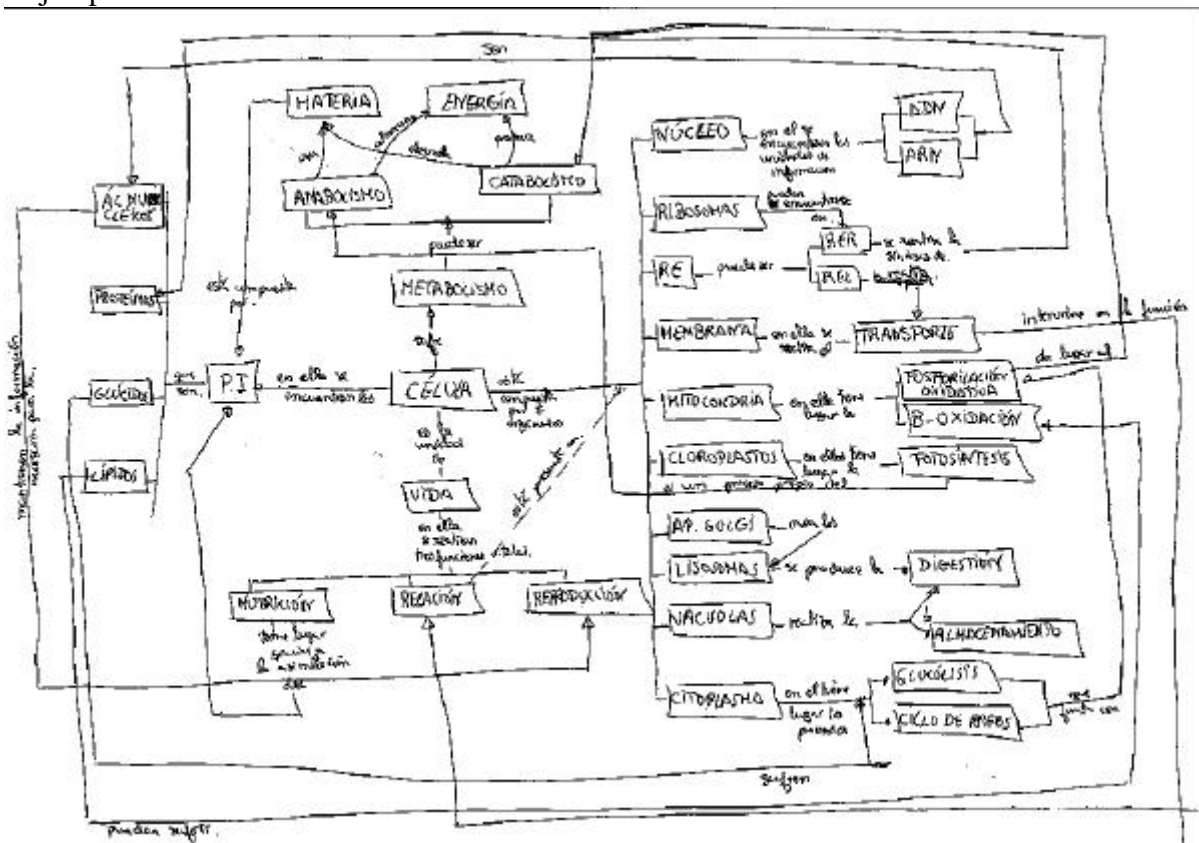 Son
MATERIA
ENERGÍA
ANABOLISMO
CATABOLISMO
puede ser
METABOLISMO
sufre
ÁC. NU
CLEICOS
PROTEÍNAS
GLÚCIDOS
LÍPIDOS
está compuesta
por
que
son
P.I
en ella se
encuentran los
CÉLULA
está
compuesta
por
orgánulos
es la
unidad
de
VIDA
en ella
se realizan
tres funciones vitales.
está presente en
NUTRICIÓN
RELACIÓN
REPRODUCCIÓN
tiene lugar
gracias a
la asimilación
de
NÚCLEO
en el se
encuentran las
unidades de
información
ADN
ARN
RIBOSOMAS
pueden
encontrarse
en.
RE
puede ser
RER
se realiza la
síntesis de.
REL
MEMBRANA
en ella se
realiza el
TRANSPORTE
interviene en la función
MITOCONDRIA
en ella tiene
lugar la
FOSFORILACIÓN
OXIDATIVA
da lugar al
B-OXIDACIÓN
CLOROPLASTOS
en ellos tiene
lugar la
FOTOSÍNTESIS
es un proceso propio del
AP. GOLGI
crea los
LISOSOMAS
se produce la
DIGESTIÓN
VACUOLAS
realiza la
ALMACENAMIENTO
CITOPLASMA
en el tiene
lugar los
procesos
GLUCÓLISIS
CICLO DE KREBS
junto con
sufren
pueden sufrir.